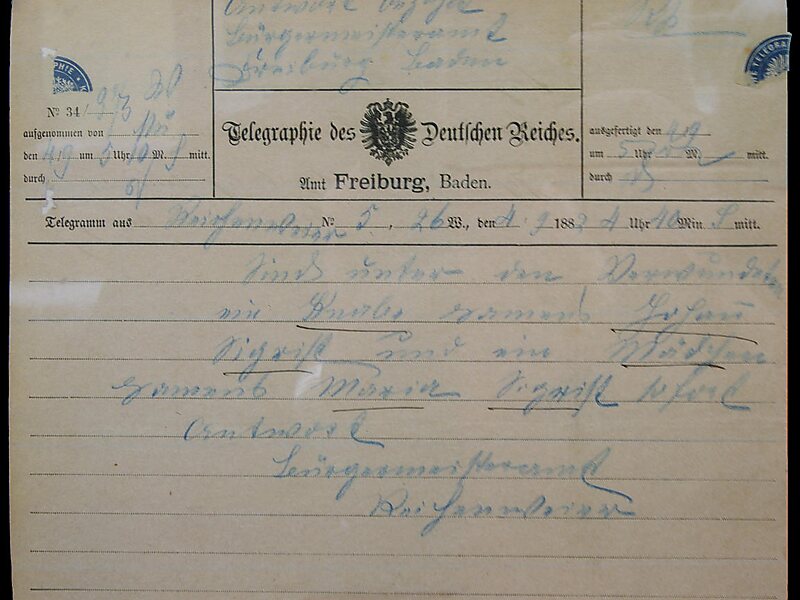 Antwort bezahlt
Bürgermeisteramt
Freiburg Baden
TELEGRA
No 34/
aufgenommen von
den 4/9 um 5 Uhr 10 M. S mitt.
durch
Telegraphie des Deutschen Reiches.
Amt Freiburg, Baden.
ausgefertigt den 4/9
um 5 Uhr M. mitt.
durch
Telegramm aus Reichenweier No 5, 26 W., den 4. 9 1882 4 Uhr 40 Min S mitt.
Sind unter den Verwundeten
ein Knabe Namens Johann
Sigrist und ein Mädchen
Namens Maria Sigrist sofort
Antwort
Bürgermeisteramt
Reichenweier